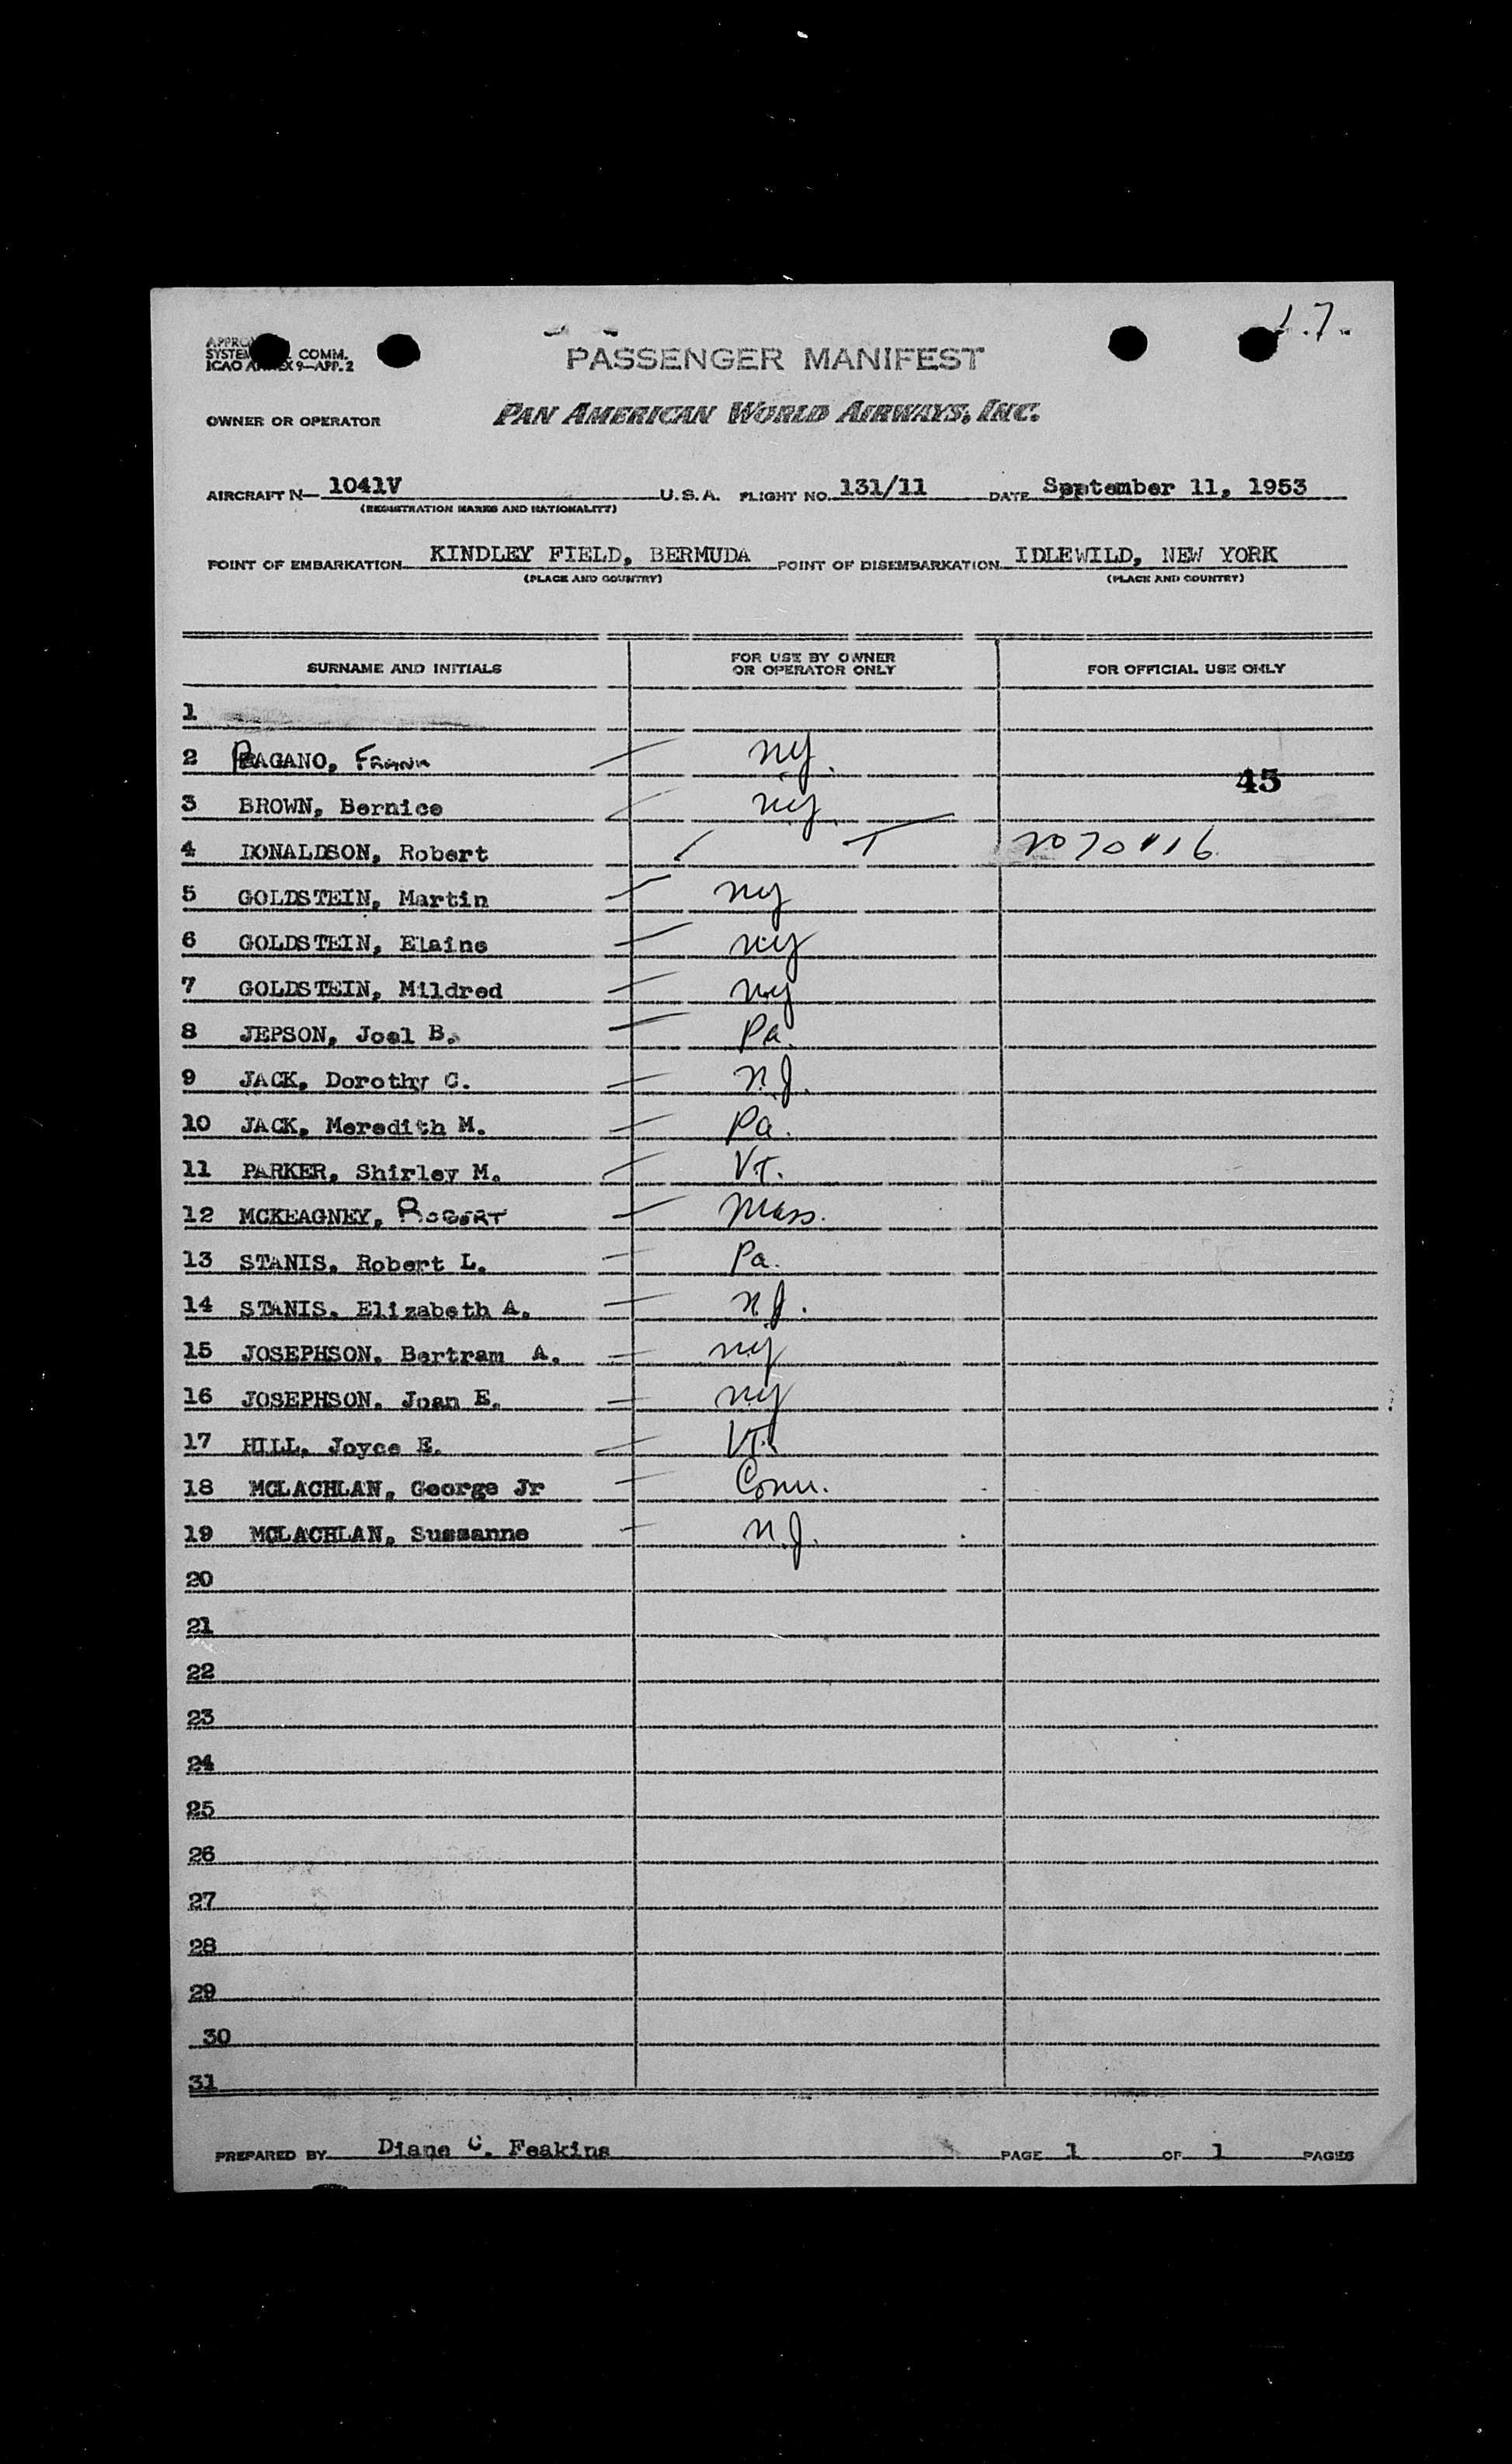 1.7.
SYSTEM COMM.
ICAO ANNEX 9—APP. 2
PASSENGER MANIFEST
OWNER OR OPERATOR PAN AMERICAN WORLD AIRWAYS, INC.
AIRCRAFT N— 1041V U.S.A. FLIGHT NO. 131/11 DATE September 11, 1953
(REGISTRATION MARKS AND NATIONALITY)
POINT OF EMBARKATION KINDLEY FIELD, BERMUDA POINT OF DISEMBARKATION IDLEWILD, NEW YORK
(PLACE AND COUNTRY) (PLACE AND COUNTRY)
SURNAME AND INITIALS FOR USE BY OWNER OR OPERATOR ONLY FOR OFFICIAL USE ONLY
1
2 PAGANO, FRANK NY.
45
3 BROWN, Bernice NY.
4 DONALDSON, Robert T
5 GOLDSTEIN, Martin NY
6 GOLDSTEIN, Elaine NY
7 GOLDSTEIN, Mildred NY
8 JEPSON, Joel B. Pa.
9 JACK, Dorothy C. N.J.
10 JACK, Meredith M. Pa.
11 PARKER, Shirley M. VT.
12 MCKEAGNEY, ROBERT Mass.
13 STANIS, Robert L. Pa.
14 STANIS, Elizabeth A. N.J.
15 JOSEPHSON, Bertram A. NY
16 JOSEPHSON, Joan E. NY
17 HILL, Joyce E. VT.
18 MCLACHLAN, George Jr Conn.
19 MCLACHLAN, Sussanne N.J.
20
21
22
23
24
25
26
27
28
29
30
31
PREPARED BY Diane C. Feakins PAGE 1 OF 1 PAGES